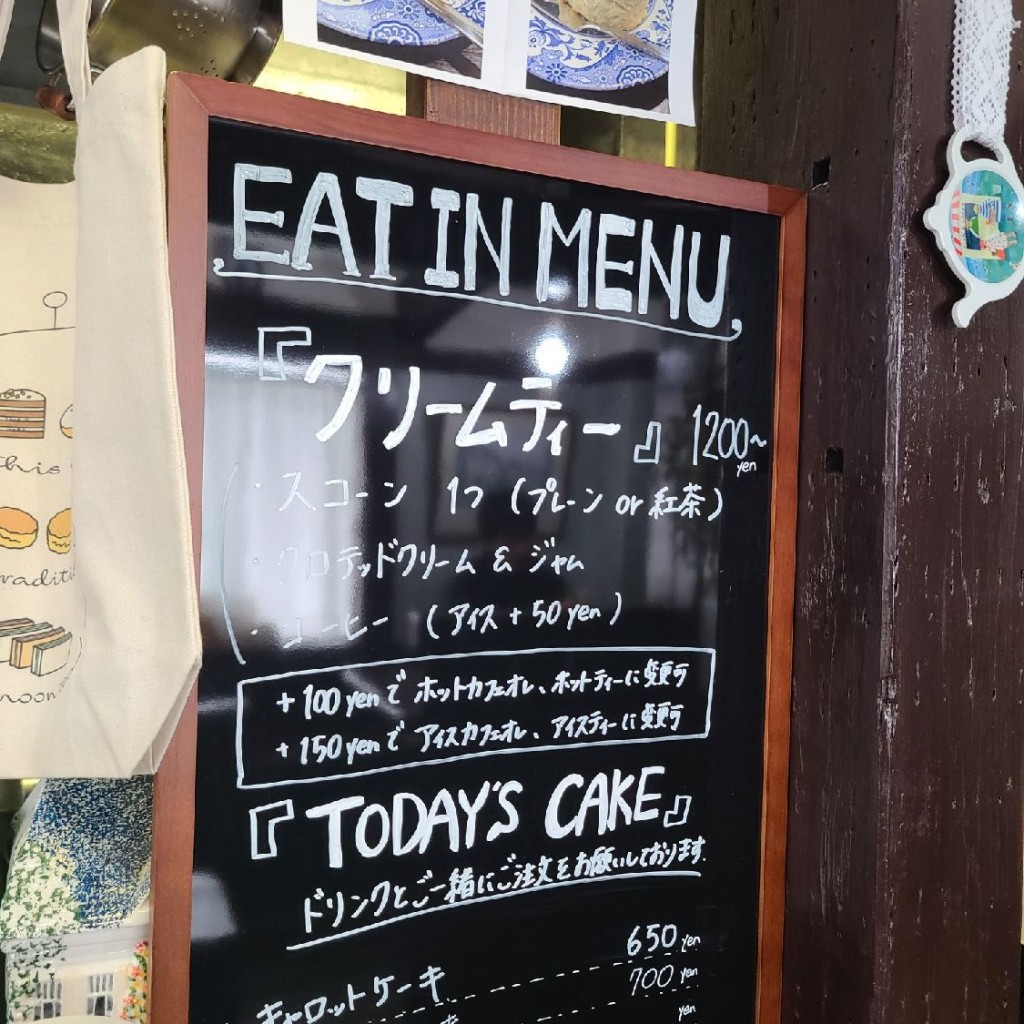 EAT IN MENU
『クリームティー』 1200~
yen
・スコーン 1つ (プレーン or 紅茶)
・クロテッドクリーム & ジャム
・コーヒー (アイス + 50 yen)
+ 100 yen で ホットカフェオレ、ホットティーに変更可
+ 150 yen で アイスカフェオレ、アイスティーに変更可
『TODAY'S CAKE』
ドリンクとご一緒にご注文をお願いしております.
キャロットケーキ 650 yen
700 yen
yen
this
noon